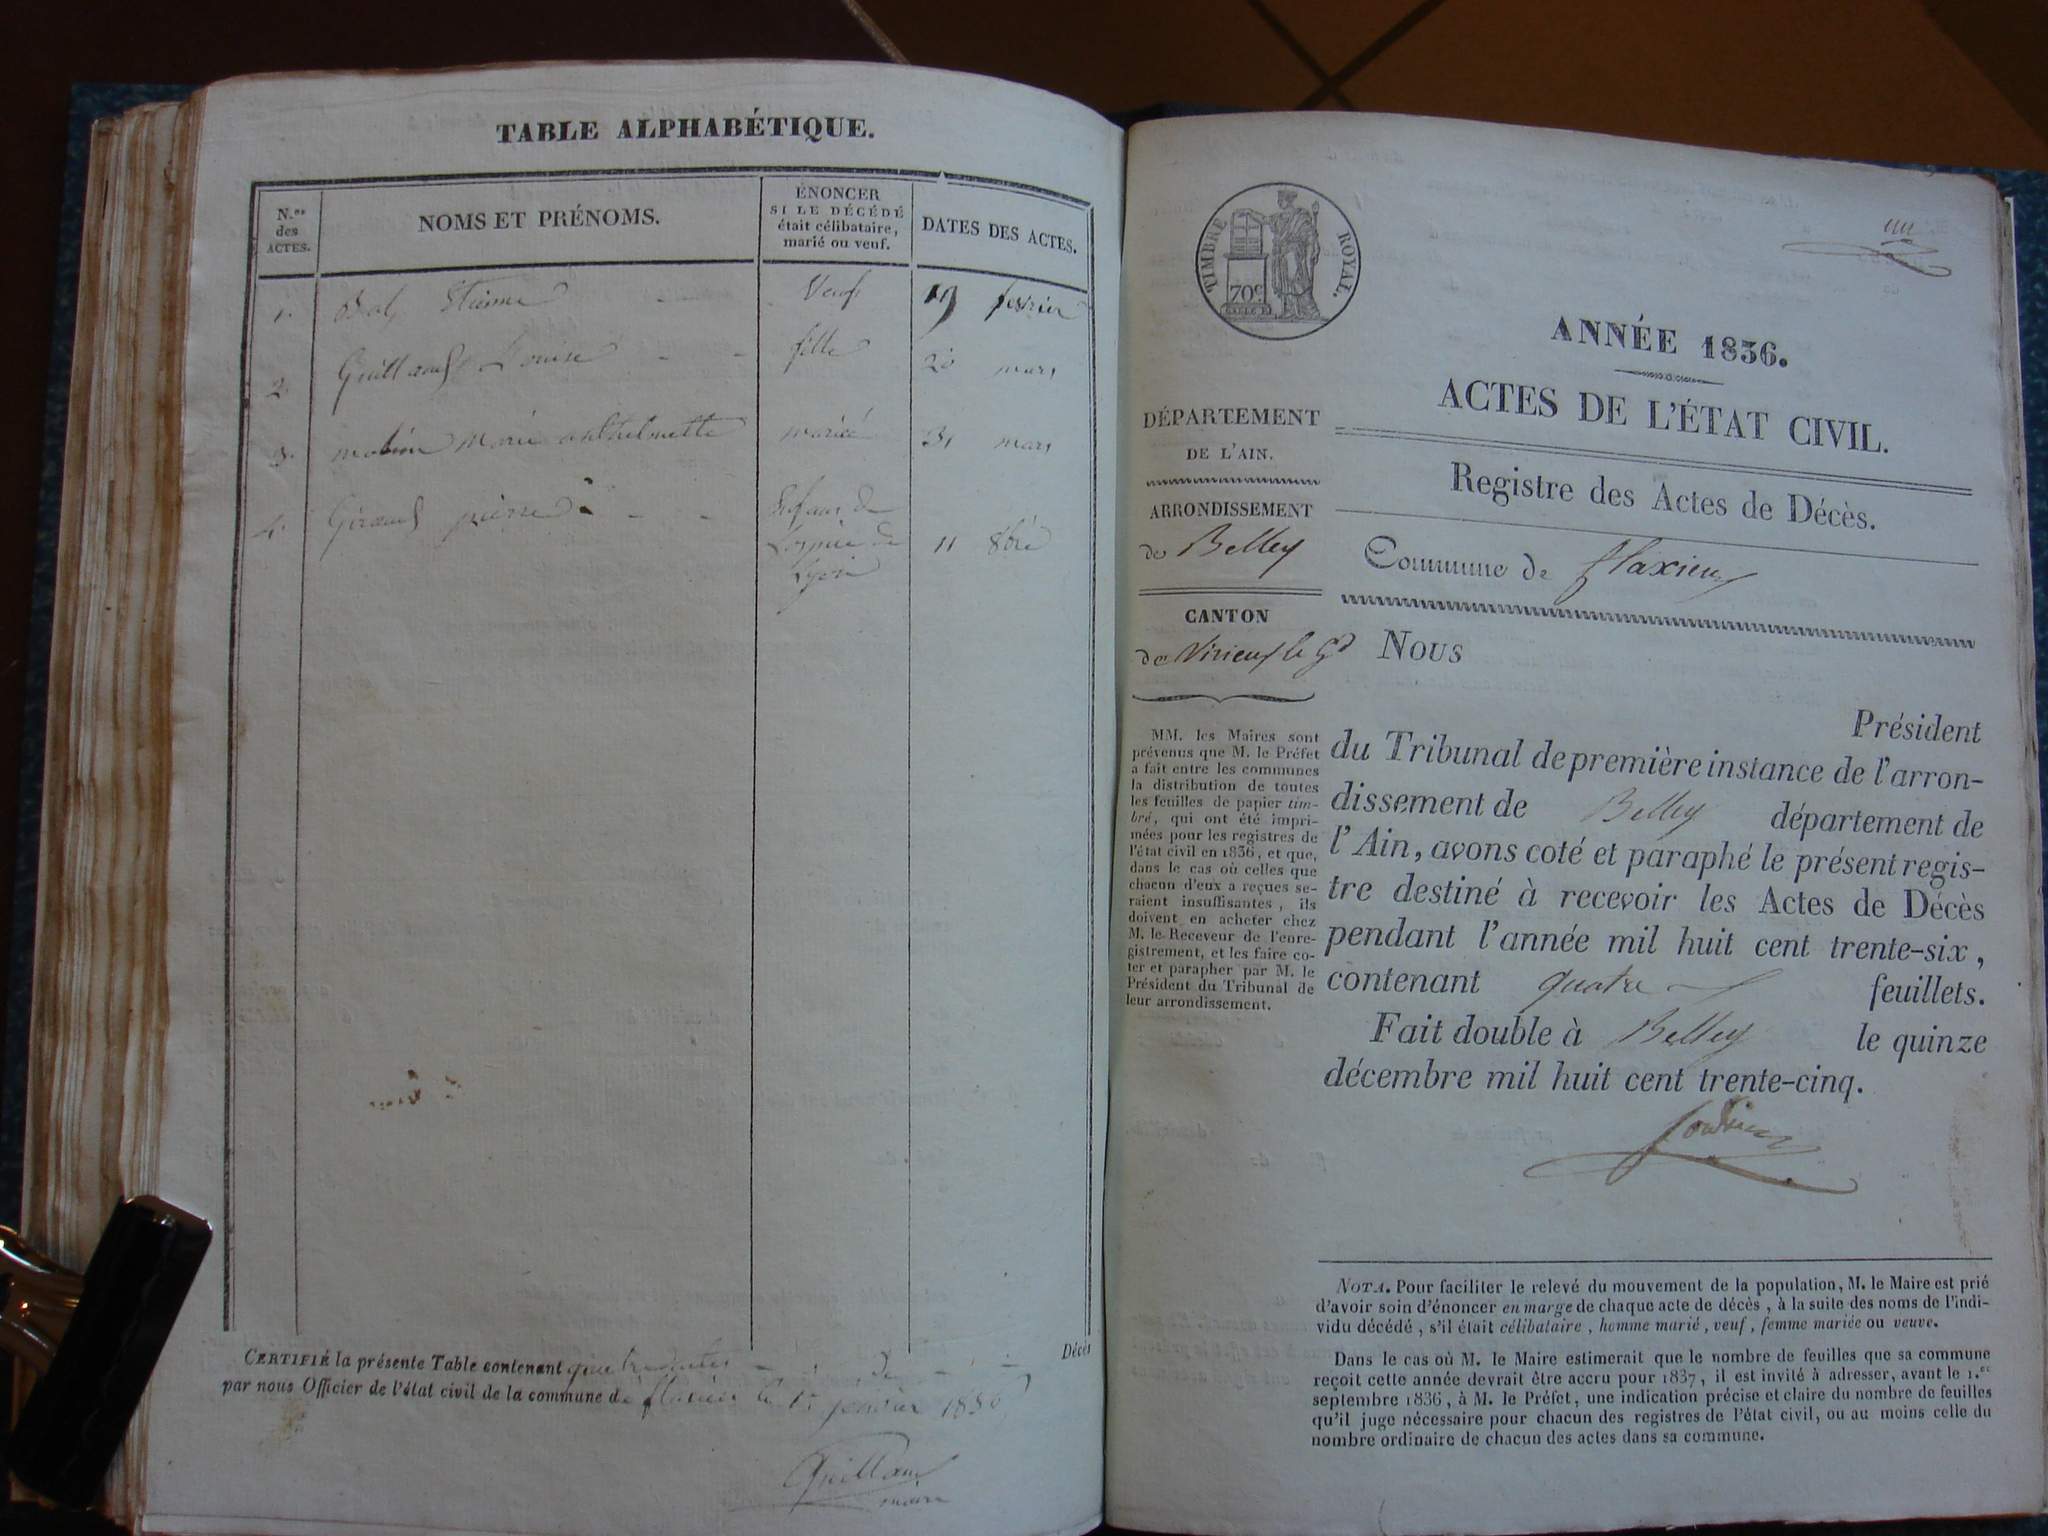 TABLE ALPHABÉTIQUE.
N.os des ACTES.
NOMS ET PRÉNOMS.
ÉNONCER
SI LE DÉCÉDÉ
était célibataire,
marié ou veuf.
DATES DES ACTES.
1. Etienne - Veuf 19 fevrier
2. Louise - - fille 20 mars
3. Marie anthelmette mariée 31 mars
4. pierre - - Enfant de
L'ospice de 11 8bre
Lyon
CERTIFIÉ la présente Table contenant quatre actes - de - Décès
par nous Officier de l'état civil de la commune de flaxieu le 1er janvier 1836
maire
TIMBRE ROYAL.
70c
ANNÉE 1836.
ACTES DE L'ÉTAT CIVIL.
Registre des Actes de Décès.
Commune de flaxieu
DÉPARTEMENT
DE L'AIN.
ARRONDISSEMENT
de Belley
CANTON
de Virieu le Gd
MM. les Maires sont
prévenus que M. le Préfet
a fait entre les communes
la distribution de toutes
les feuilles de papier tim-
bré, qui ont été impri-
mées pour les registres de
l'état civil en 1836, et que,
dans le cas où celles que
chacun d'eux a reçues se-
raient insuffisantes, ils
doivent en acheter chez
M. le Receveur de l'enre-
gistrement, et les faire co-
ter et parapher par M. le
Président du Tribunal de
leur arrondissement.
Nous
Président
du Tribunal de première instance de l'arron-
dissement de Belley département de
l'Ain, avons coté et paraphé le présent regis-
tre destiné à recevoir les Actes de Décès
pendant l'année mil huit cent trente-six,
contenant quatre feuillets.
Fait double à Belley le quinze
décembre mil huit cent trente-cinq.
NOTA. Pour faciliter le relevé du mouvement de la population, M. le Maire est prié
d'avoir soin d'énoncer en marge de chaque acte de décès, à la suite des noms de l'indi-
vidu décédé, s'il était célibataire, homme marié, veuf, femme mariée ou veuve.
Dans le cas où M. le Maire estimerait que le nombre de feuilles que sa commune
reçoit cette année devrait être accru pour 1837, il est invité à adresser, avant le 1.er
septembre 1836, à M. le Préfet, une indication précise et claire du nombre de feuilles
qu'il juge nécessaire pour chacun des registres de l'état civil, ou au moins celle du
nombre ordinaire de chacun des actes dans sa commune.